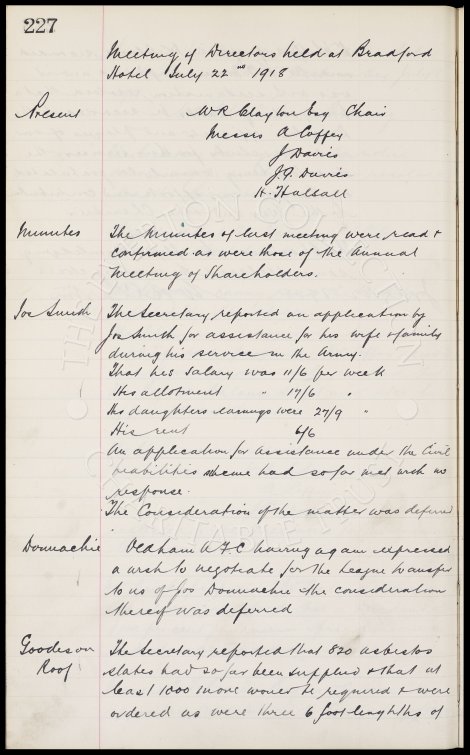 227
Meeting of Directors held at Bradford
Hotel July 22nd 1918
Present W R Clayton Esq Chair
Messrs A Coffey
J Davies
J. F. Davies
H. Halsall
Minutes The Minutes of last meeting were read &
confirmed as were those of the Annual
Meeting of Shareholders.
Jos Smith The Secretary reported an application by
Jos Smith for assistance for his wife & family
during his service in the Army.
That his salary was 11/6 per week
His allotment " 17/6 "
His daughters earnings were 27/9 "
His rent 6/6
An application for assistance under the Civil
Liabilities scheme had so far met with no
response.
The Consideration of the matter was deferred
Donnachie Oldham A F C having again expressed
a wish to negotiate for the League transfer
to us of Jos Donnachie the consideration
thereof was deferred
Goodison The Secretary reported that 820 asbestos
Roof slates had so far been supplied & that at
least 1000 more would be required & were
ordered as were three 6 foot lengths of
THE EVERTON COLLECTION
CHARITABLE TRUST